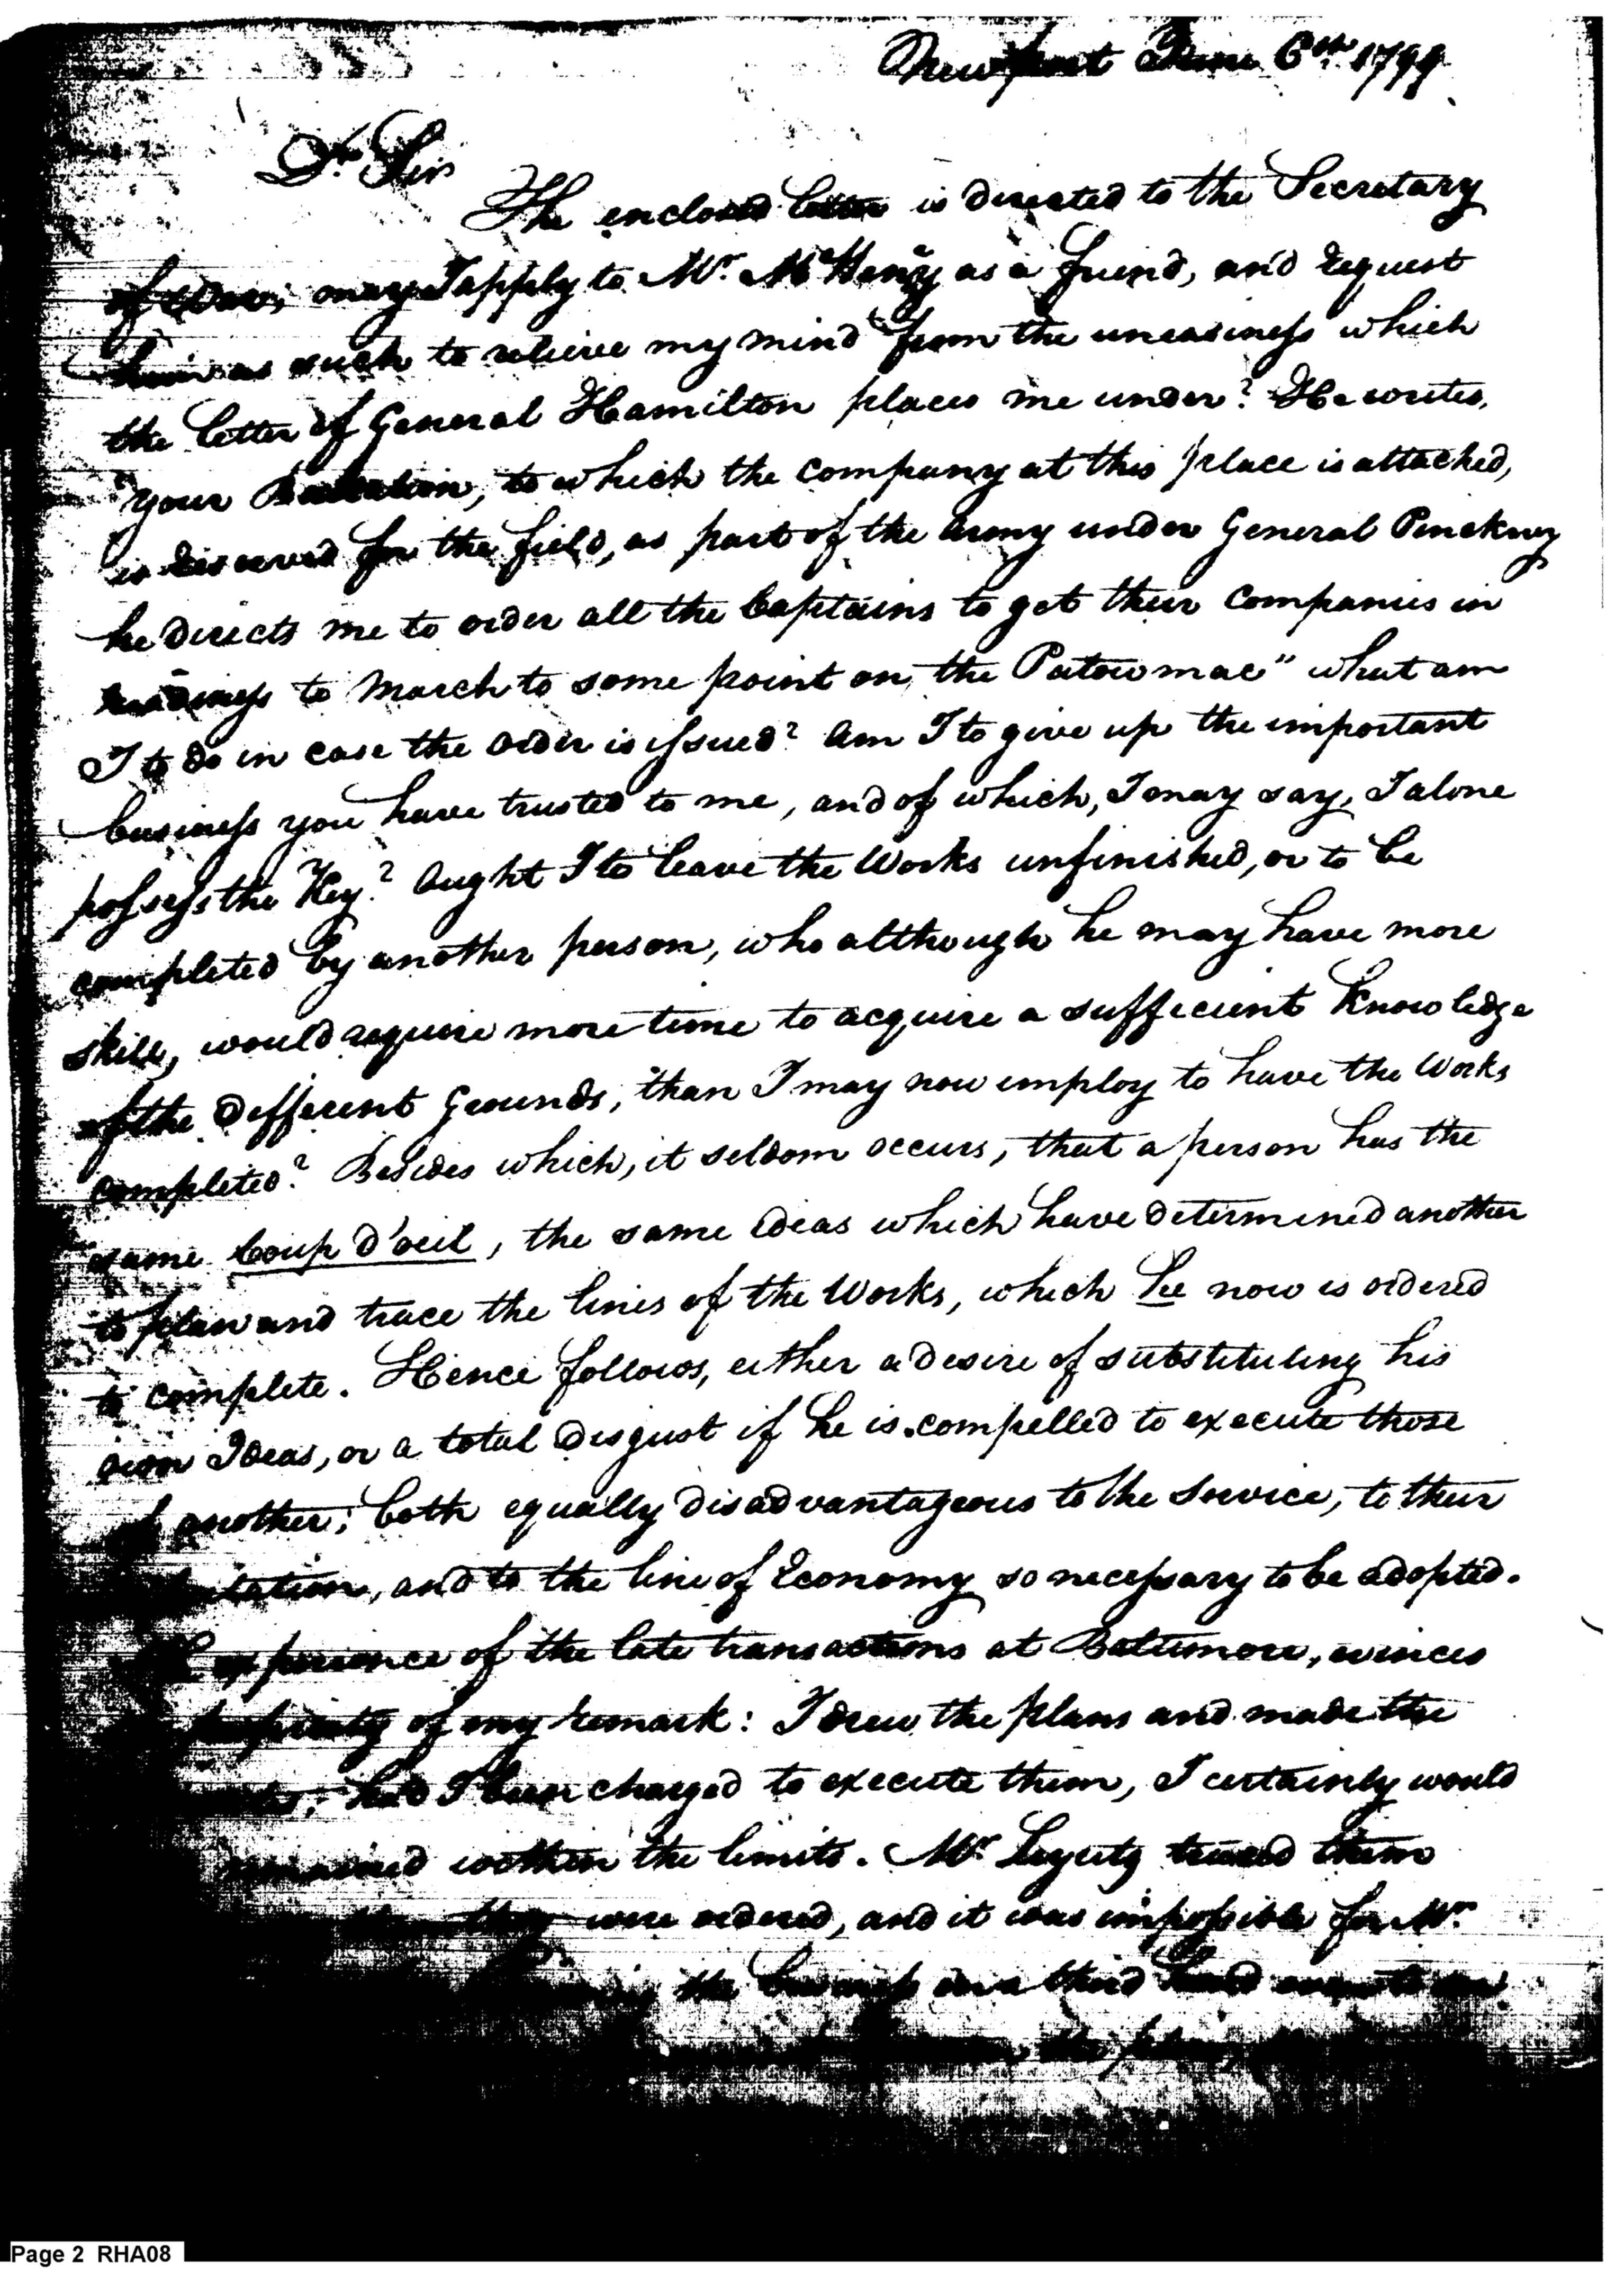 Newport June 6th. 1799.
Dr. Sir
The enclosed letter is directed to the Secretary
of War; may I apply to Mr. McHenry as a friend, and request
him as such to relieve my mind from the uneasiness which
the letter of General Hamilton places me under? He writes,
"Your Battalion, to which the company at this place is attached,
is reserved for the field, as part of the Army under General Pinckney
he directs me to order all the Captains to get their Companies in
readiness to march to some point on the Potowmac" what am
I to do in case the order is issued? Am I to give up the important
business you have trusted to me, and of which, I may say, I alone
possess the Key? Aught I to leave the Works unfinished, or to be
completed by another person, who although he may have more
skill, would require more time to acquire a sufficient Knowledge
of the different Grounds, than I may now employ to have the Works
completed? Besides which, it seldom occurs, that a person has the
same Coup d'oeil, the same ideas which have determined another
to plan and trace the lines of the Works, which he now is ordered
to complete. Hence follows, either a desire of substituting his
own Ideas, or a total disgust if he is compelled to execute those
of another; both equally disadvantageous to the Service, to their
and to the line of Economy so necessary to be adopted.
experience of the late transactions at Baltimore, evinces
of my remark: I drew the plans and made the
had I been charged to execute them, I certainly would
remained within the limits. Mr. traced them
they were ordered, and it was impossible for Mr.
the business in a third hand
the plan
Page 2 RHA08